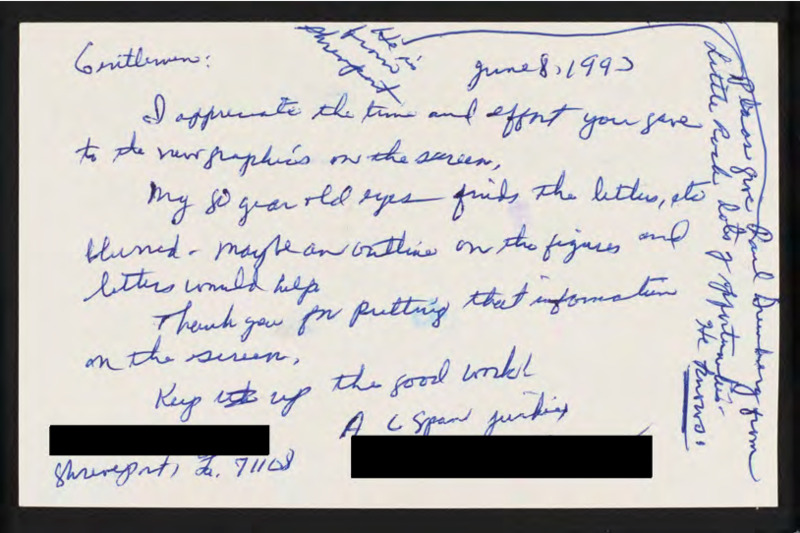 Gentlemen:
June 8, 1993
I appreciate the time and effort you gave
to the new graphics on the screen,
My 80 year old eyes finds the letters, etc
blurred - maybe an outline on the figures and
letters would help
Thank you for putting that information
on the screen,
Keep up the good work!
A C Span junkie
Shreveport, La. 71108
Please give Paul from
Little Rock lots of opportunities.
He knows!
He is
from
Shreveport